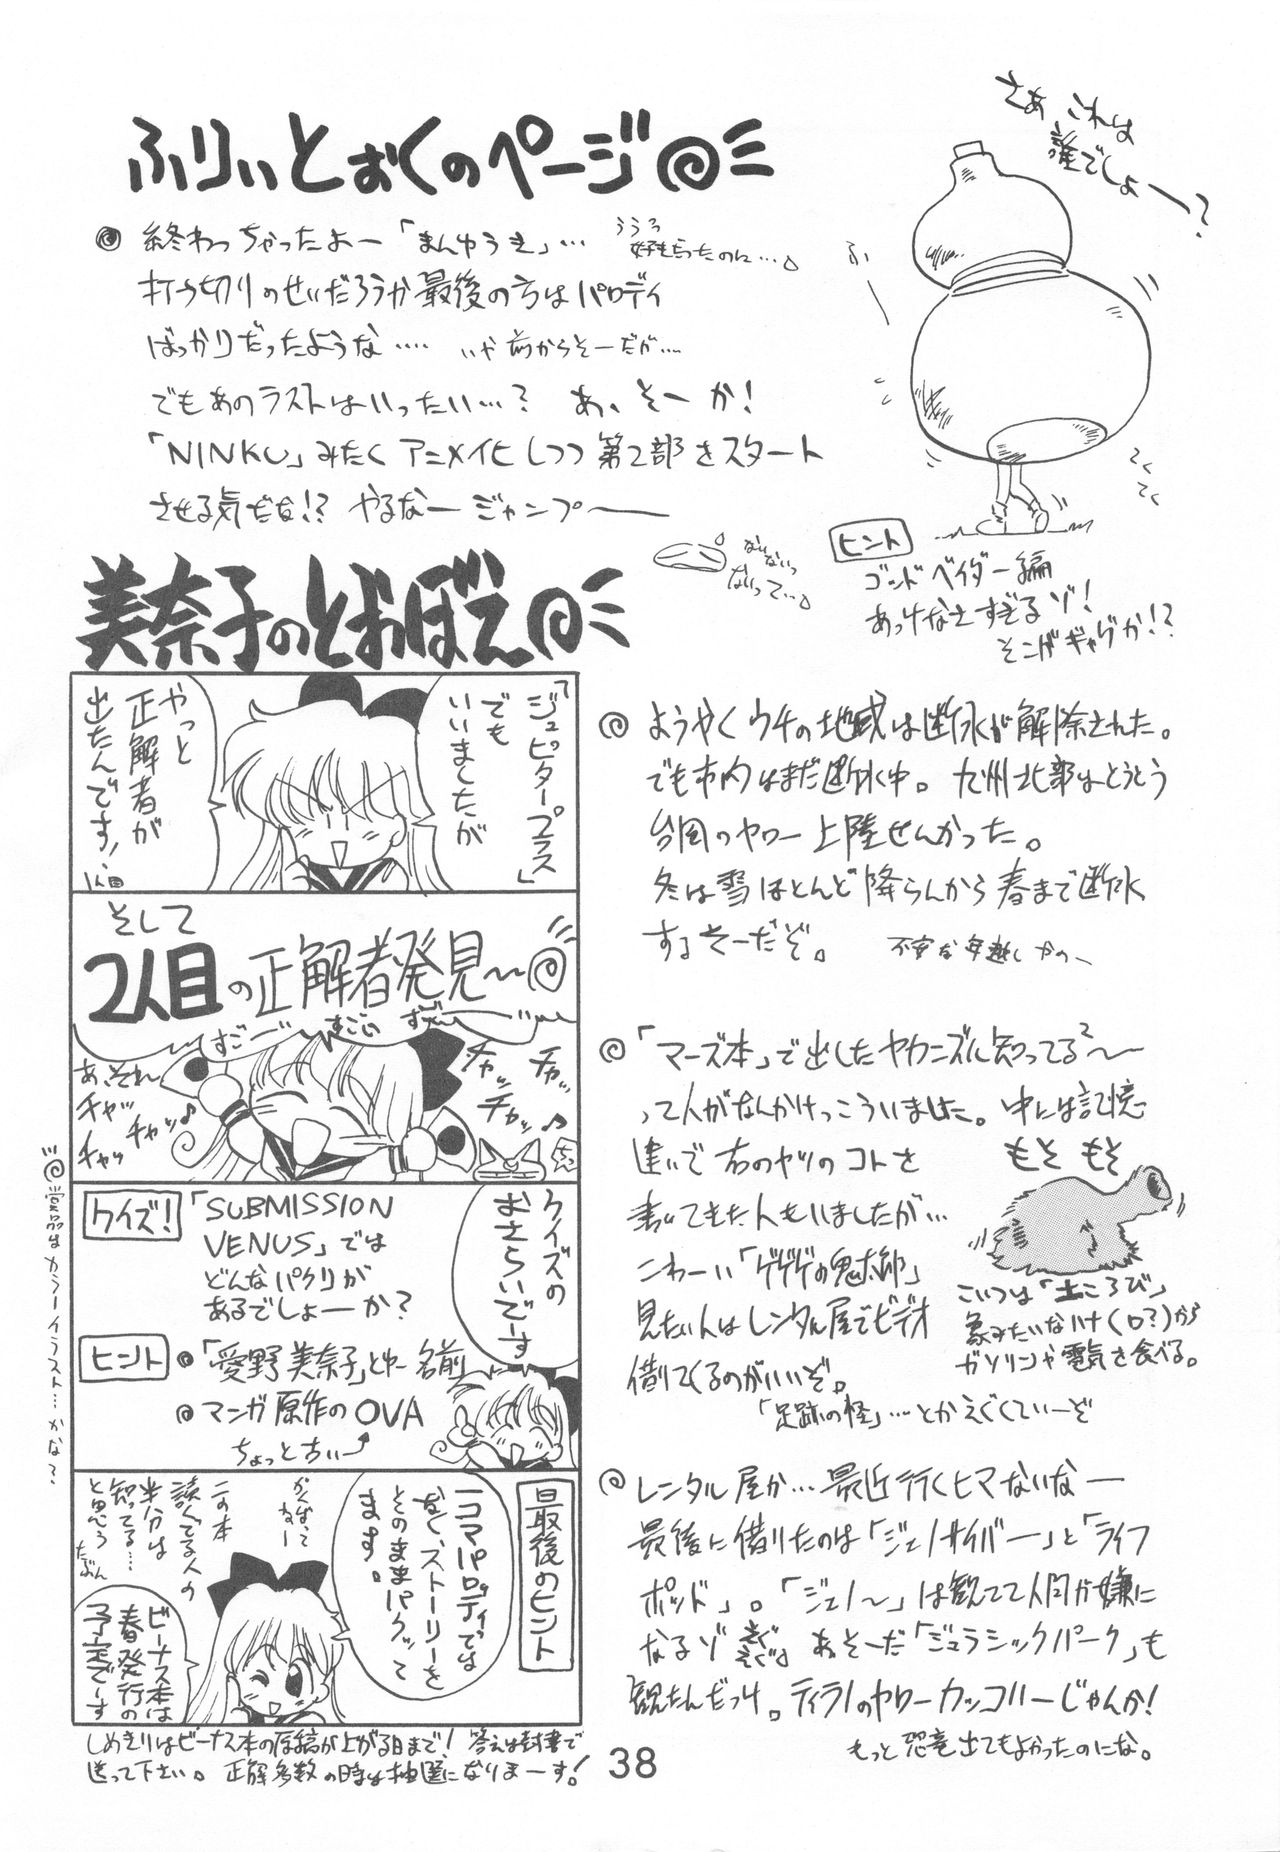 ふりぃとぉくのページ
さあ これは
誰でしょー?
終わっちゃったよー「まんゆうき」…
ううう
好きだったのに…
打ち切りのせいだろうか最後の方はパロディ
ばっかりだったような‥‥ いや前からそーだが‥‥
でもあのラストはいったい…? あ、そーか!
「NINKU」みたく アニメイ化しつつ 第2部をスタート
させる気だな!? やるなー ジャンプ――
ないないっ
ないって…
ふー
てく
てく
ヒント
ゴンドベイダー編
あっけなさすぎるゾ!
そこがギャグか!?
美奈子のとおぼえ
「ジュピタープラス」
でも
いいましたが
やっと
正解者が
出たんです!
1人目
そして
2人目の正解者発見〜〜
すごーい
すごい
あ、それ
チャッ
チャッ
チャッ
チャッ
チャッ
チャッ♪
クイズの
おさらいでーす
クイズ!
「SUBMISSION
VENUS」では
どんなパクリが
あるでしょーか?
ヒント
「愛野美奈子」とゆー名前
マンガ原作のOVA
ちょっと古い
賞品はカラーイラスト…かな?
最後のヒント
一コマパロディでは
なく、ストーリーを
そのままパクッて
ます。
がんばって
ねー
この本
読んでる人の
半分は
知ってる…
と思う
たぶん
ビーナス本は
春発行の
予定でーす
しめきりはビーナス本の原稿が上がる日まで! 答えは封書で
送って下さい。 正解多数の時は抽選になりまーす!
ようやくウチの地域は断水が解除された。
でも市内はまだ断水中。 九州北部はとうとう
台風のヤロー上陸せんかった。
冬は雪ほとんど降らんから春まで断水
するそーだぞ。 不安な年越しかのー
「マーズ本」で出したヤカニズル知ってる?〜〜
って人がなんかけっこういました。中には記憶
違いで右のヤツのコトを
書いてきた人もいましたが…
こわーい「ゲゲゲの鬼太郎」
見たい人はレンタル屋でビデオ
借りてくるのがいいぞ。
「足跡の怪」…とかえぐくていーぞ
もそ もそ
こいつは「土ころび」
象みたいなハナ(口?)から
ガソリンや電気を食べる。
レンタル屋か…最近行くヒマないなー
最後に借りたのは「ジェノサイバー」と「ライフ
ポッド」。「ジェノ〜」は観てて人間が嫌に
なるゾ あ、そーだ「ジュラシックパーク」も
観たんだっけ。ティラノのヤローカッコいーじゃんか!
もっと恐竜出てもよかったのにな。
38